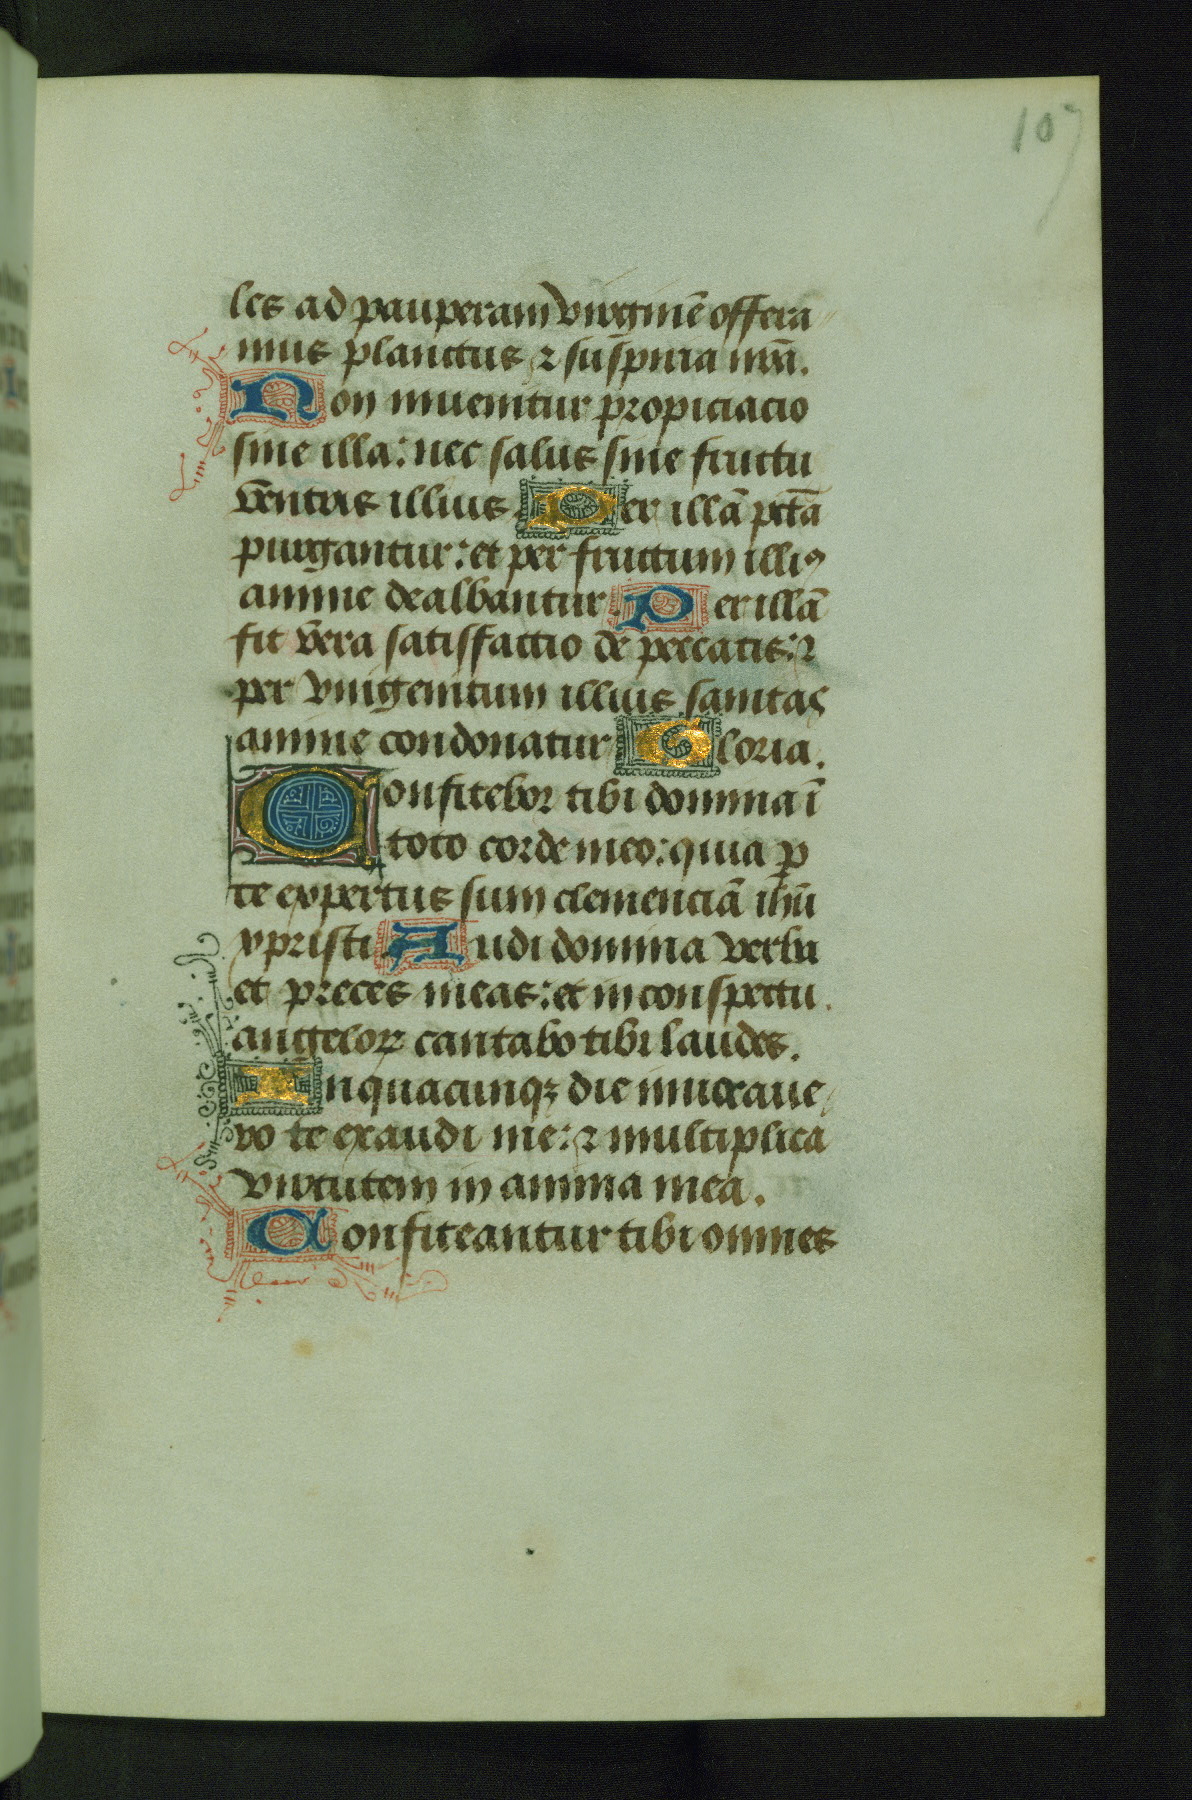 107
les ad pauperam virginē offera
mus planctus ⁊ suspiria nrā.
Non inuenitur propiciacio
sine illa: nec salus sine fructu
ventris illius Per illā pctā
purgantur: et per fructum illiꝰ
anime dealbantur. Per illā
fit vera satisfactio de peccatis: ⁊
per vnigenitum illius sanitas
anime condonatur Gloria.
Confitebor tibi domina ī
toto corde meo: quia ꝑ
te expertus sum clemenciā ihū
xpristi Audi domina verba
et preces meas: et in conspectu
angeloꝝ cantabo tibi laudes.
In quacunqꝫ die inuocaue
ro te exaudi me: ⁊ multiplica
virtutem in anima mea.
Confiteantur tibi omnes